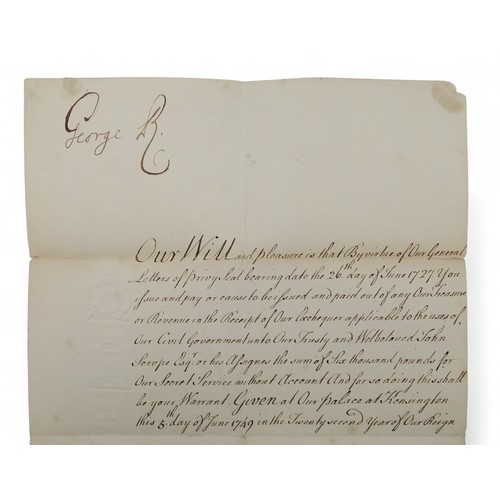 George R.
Our Will and pleasure is that By virtue of Our General
Letters of privy Seal bearing date the 26th day of June 1727 You
issue and pay or cause to be issued and paid out of any Our Treasure
or Revenue in the Receipt of Our Exchequer applicable to the uses of
Our Civil Government unto Our Trusty and Welbeloved John
Scrope Esqr. or his Assignes the sum of Six thousand pounds for
Our Secret Service without Account And for so doing this shall
be your Warrant Given at Our palace at Kensington
this 5th day of June 1749 in the Twenty second Year of Our Reign